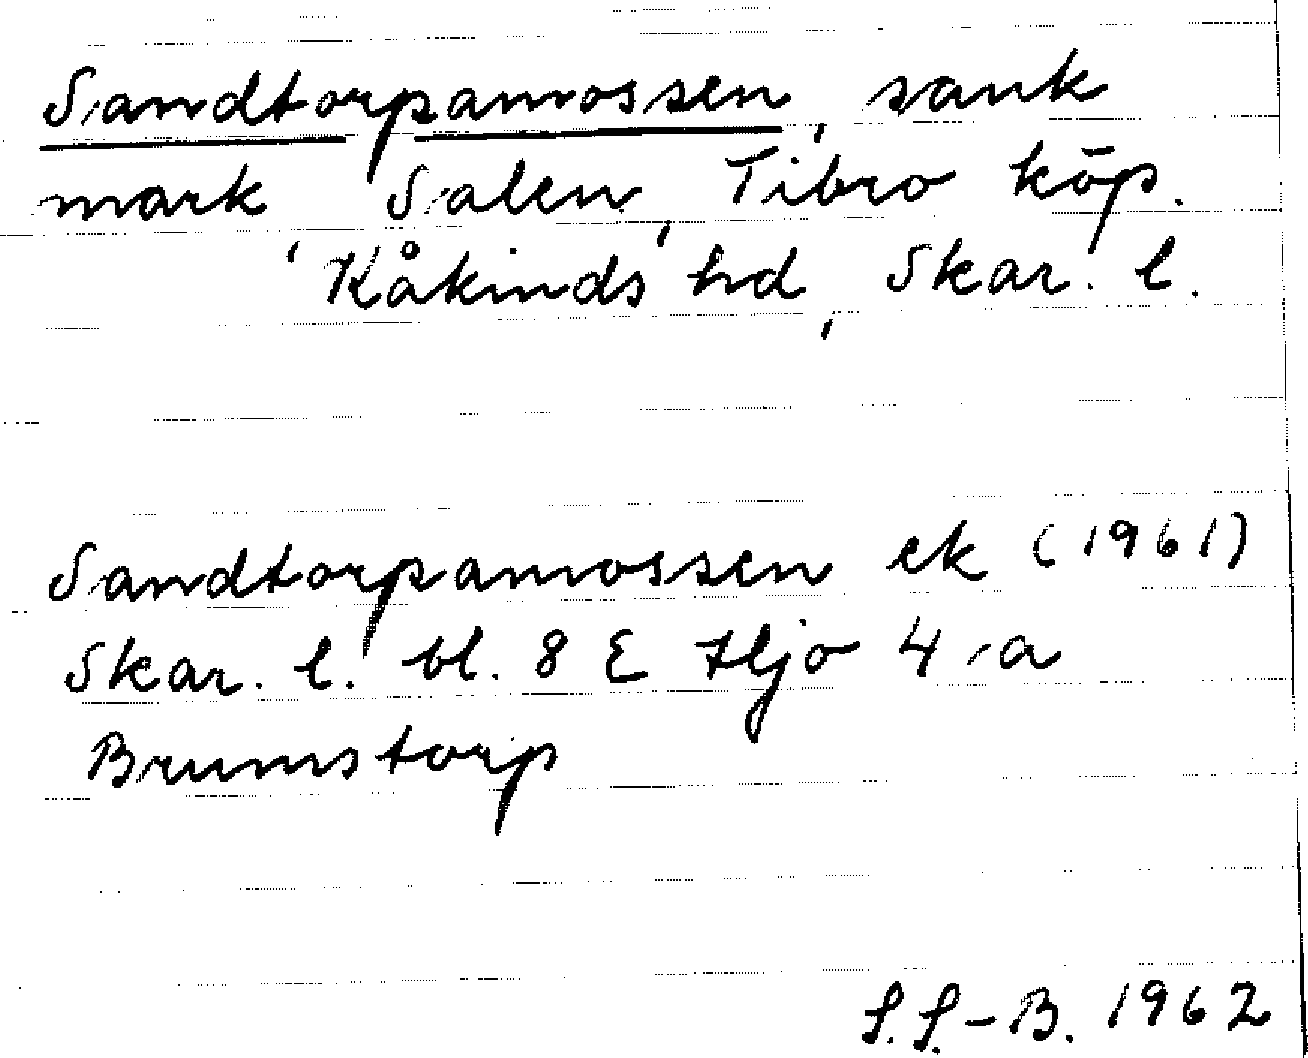 Sandtorpamossen, sank
mark, Salen, Tibro köp.
Kåkinds hd, Skar. l.
Sandtorpamossen ek (1961)
Skar. l. bl. 8 E Hjo 4 a
Brumstorp
S.S-B. 1962